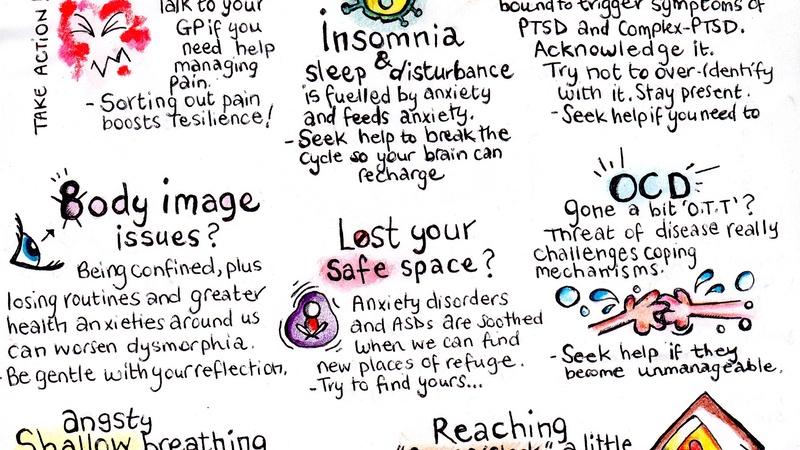 TAKE ACTION!
Talk to your
GP if you
need help
managing
pain.
- Sorting out pain
boosts resilience!
Insomnia
&
sleep disturbance
is fuelled by anxiety
and feeds anxiety.
- Seek help to break the
cycle so your brain can
recharge
bound to trigger symptoms of
PTSD and Complex-PTSD.
Acknowledge it.
Try not to over-identify
with it. Stay present.
- Seek help if you need to
Body image
issues?
Being confined, plus
losing routines and greater
health anxieties around us
can worsen dysmorphia.
- Be gentle with your reflection.
Lost your
safe space?
Anxiety disorders
and ASDs are soothed
when we can find
new places of refuge.
- Try to find yours...
OCD
gone a bit 'O.T.T'?
Threat of disease really
challenges coping
mechanisms.
- Seek help if they
become unmanageable.
angsty
Shallow breathing
Reaching
a little